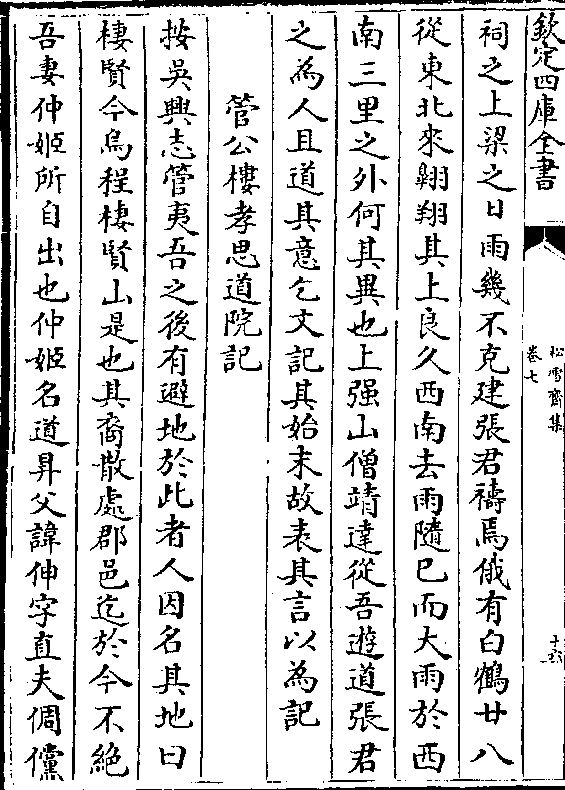 欽定四庫全書
松雪齋集
卷七
祠之上梁之日雨幾不克建張君禱焉俄有白鶴廿八
從東北來翱翔其上良久西南去雨隨已而大雨於西
南三里之外何其異也上强山僧靖達從吾遊道張君
之為人且道其意乞文記其始末故表其言以為記
管公樓孝思道院記
按吳興志管夷吾之後有避地於此者人因名其地曰
棲賢今烏程棲賢山是也其裔散處郡邑迄於今不絶
吾妻仲姬所自出也仲姬名道昇父諱伸字直夫倜儻